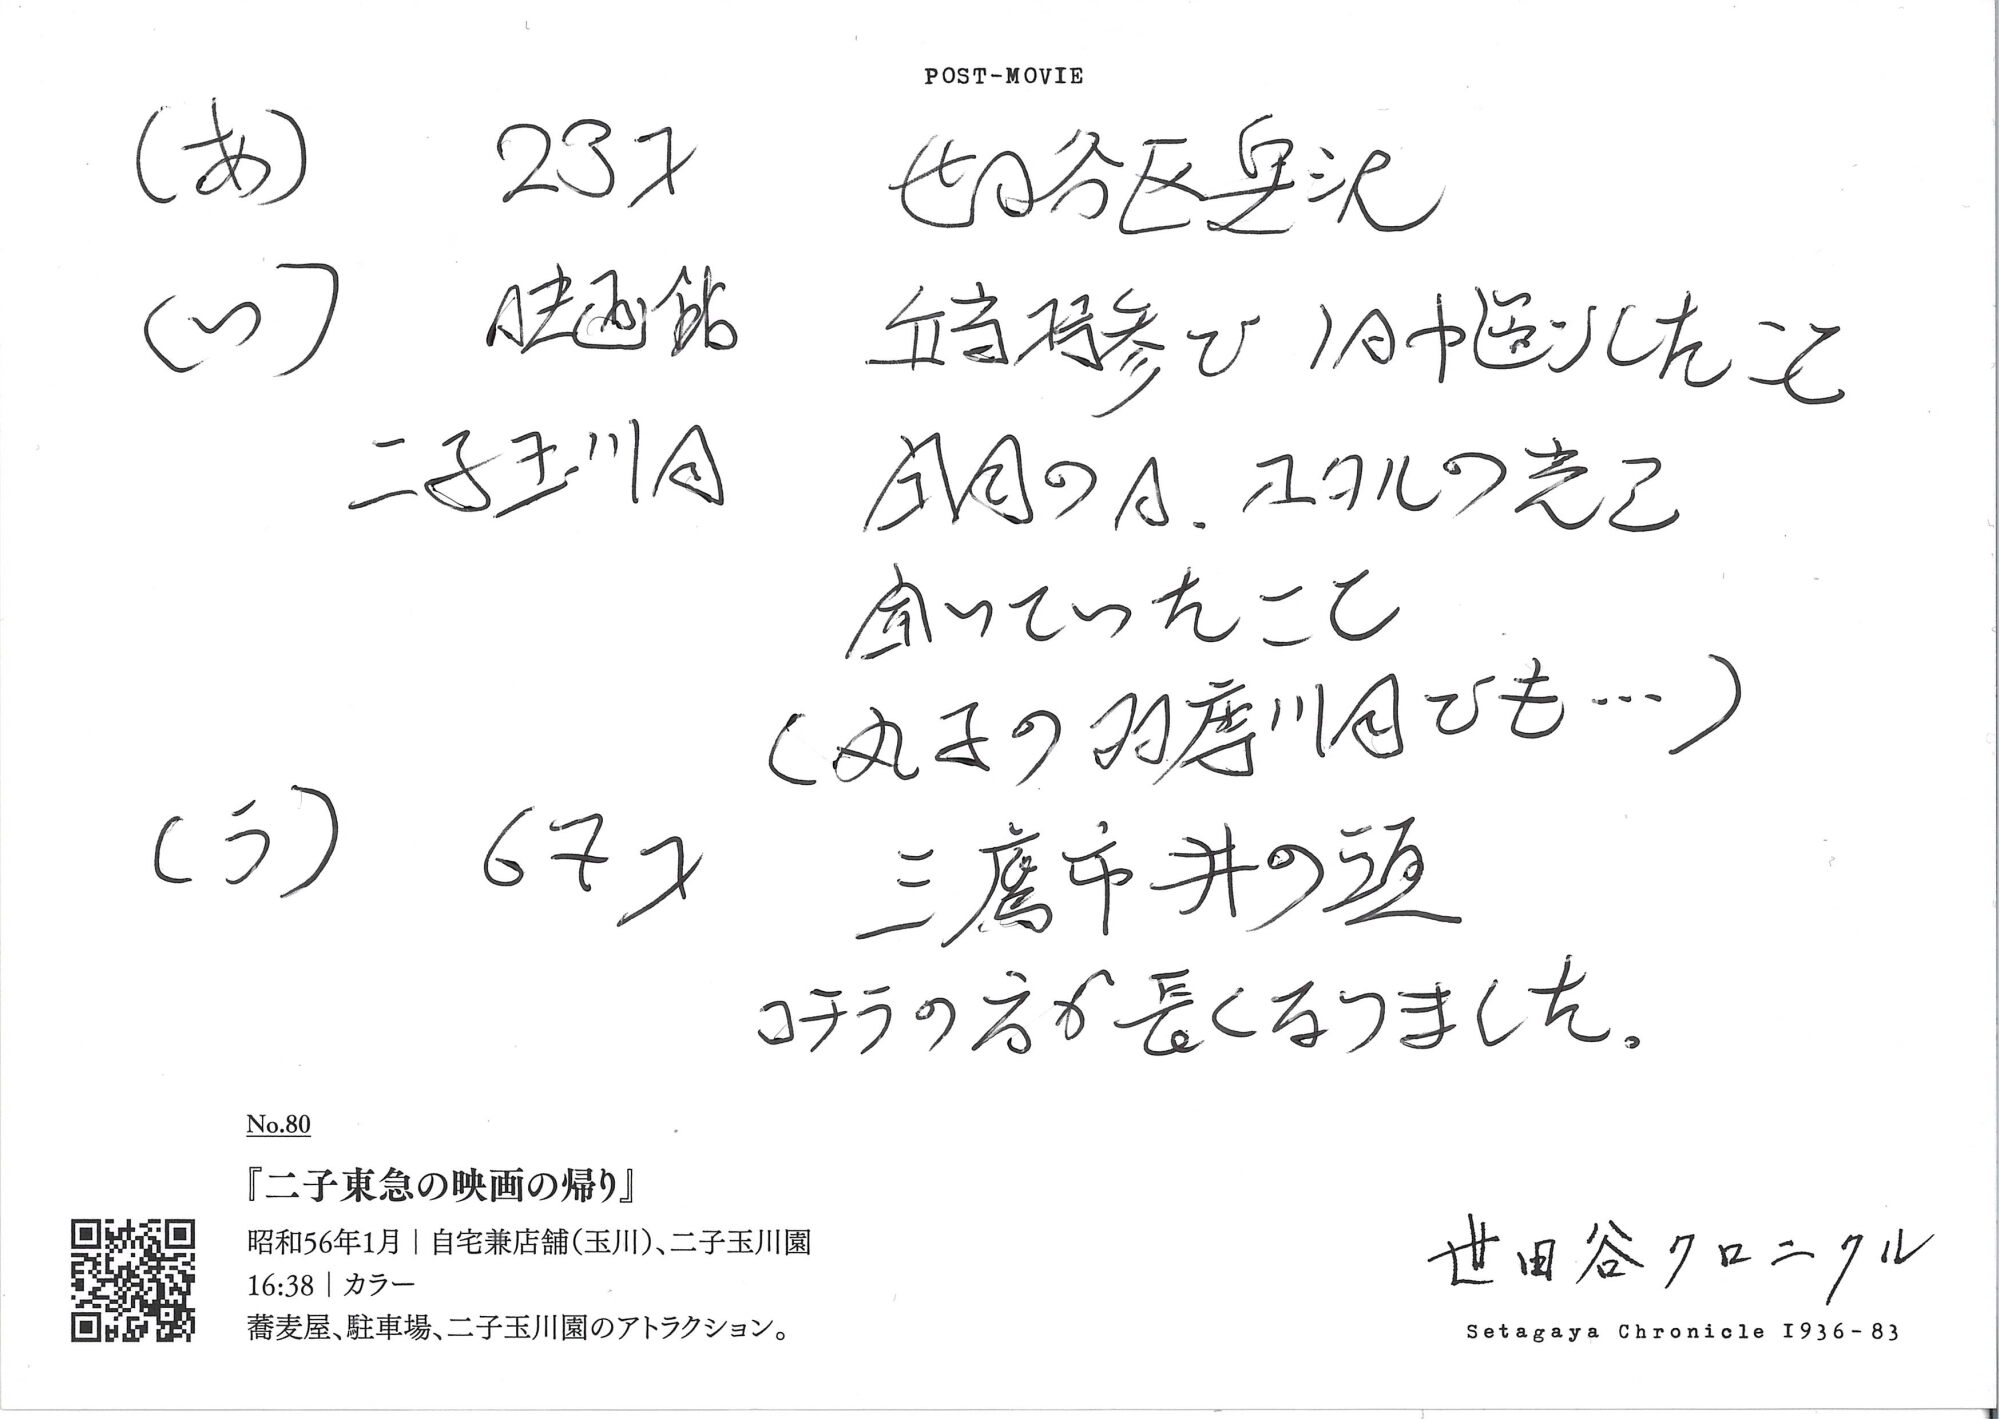 POST-MOVIE
(あ) 23才 世田谷区奥沢
(い) 映画館 立寄 で1日中過ごしたこと
二子玉川園 開園の日、ホタルの光
いていたこと
(丸子の多摩川園でも…)
(う) 67才 三鷹市井の頭
コチラの方が長くなりました。
No.80
『二子東急の映画の帰り』
昭和56年1月｜自宅兼店舗(玉川)、二子玉川園
16:38｜カラー
蕎麦屋、駐車場、二子玉川園のアトラクション。
世田谷クロニクル
Setagaya Chronicle 1936-83